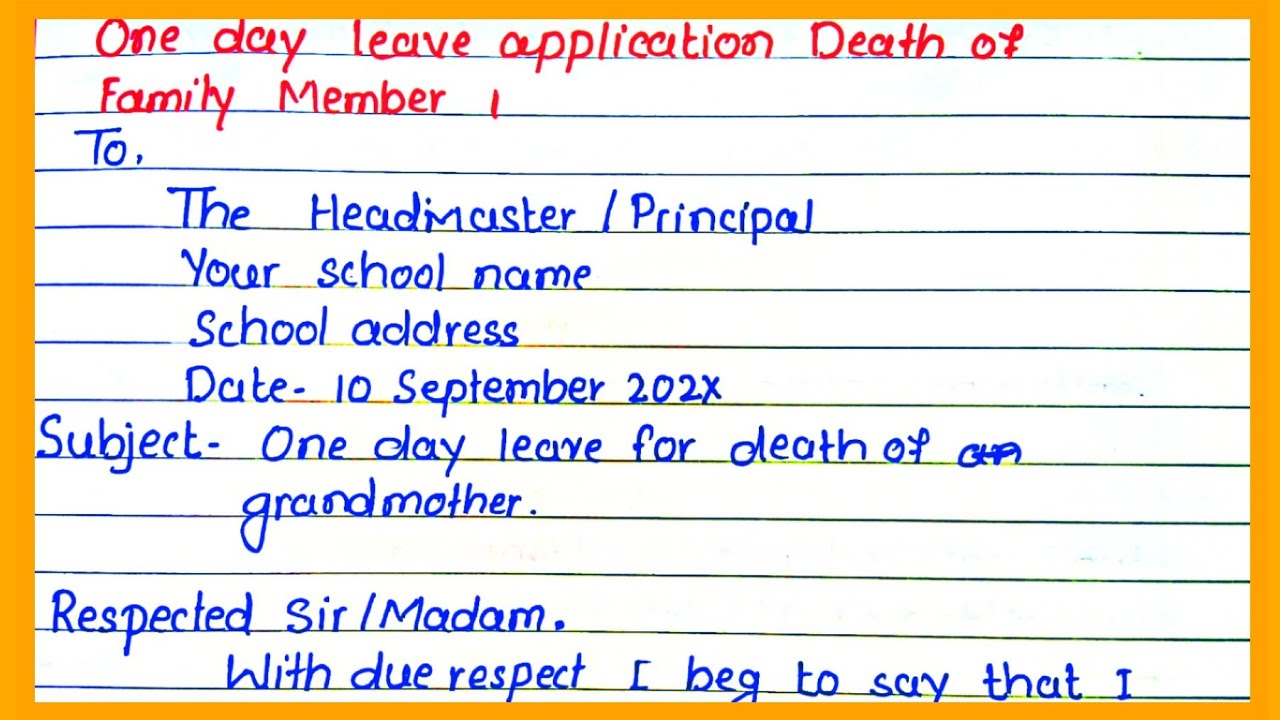 One day leave application Death of
Family Member |
To,
The Headmaster / Principal
Your school name
School address
Date- 10 September 202X
Subject- One day leave for death of
grandmother.
Respected Sir/Madam.
With due respect I beg to say that I